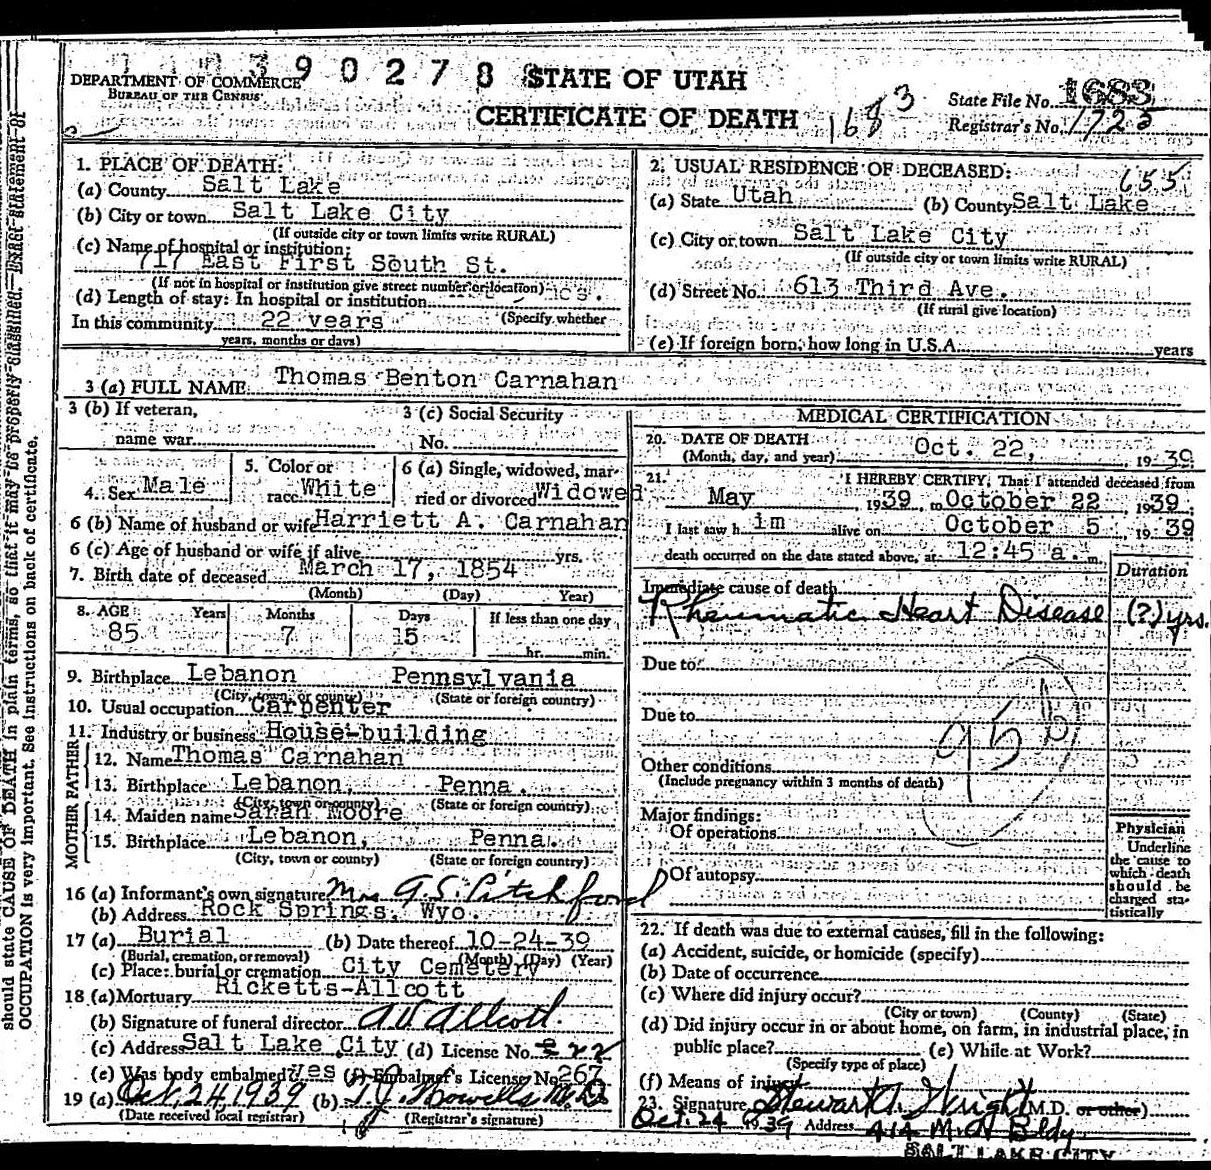 390278
DEPARTMENT OF COMMERCE
BUREAU OF THE CENSUS
STATE OF UTAH
CERTIFICATE OF DEATH
1683
State File No. 1683
Registrar's No. 1723
1. PLACE OF DEATH:
(a) County Salt Lake
(b) City or town Salt Lake City
(If outside city or town limits write RURAL)
(c) Name of hospital or institution:
717 East First South St.
(If not in hospital or institution give street number or location)
(d) Length of stay: In hospital or institution
In this community 22 years (Specify whether
years, months or days)
2. USUAL RESIDENCE OF DECEASED:
655
(a) State Utah (b) County Salt Lake
(c) City or town Salt Lake City
(If outside city or town limits write RURAL)
(d) Street No. 613 Third Ave.
(If rural give location)
(e) If foreign born, how long in U.S.A. years
3 (a) FULL NAME Thomas Benton Carnahan
3 (b) If veteran, name war
3 (c) Social Security No.
4. Sex Male
5. Color or race White
6 (a) Single, widowed, married or divorced Widowed
6 (b) Name of husband or wife Harriett A. Carnahan
6 (c) Age of husband or wife if alive yrs.
7. Birth date of deceased March 17, 1854
(Month) (Day) Year)
8. AGE Years Months Days If less than one day
85 7 15 hr. min.
9. Birthplace Lebanon Pennsylvania
(City, town, or county) (State or foreign country)
10. Usual occupation Carpenter
11. Industry or business House-building
FATHER
12. Name Thomas Carnahan
13. Birthplace Lebanon, Penna.
(City, town or county) (State or foreign country)
MOTHER
14. Maiden name Sarah Moore
15. Birthplace Lebanon, Penna.
(City, town or county) (State or foreign country)
16 (a) Informant's own signature Mrs G.S. Pitchford
(b) Address Rock Springs, Wyo.
17 (a) Burial (b) Date thereof 10-24-39
(Burial, cremation, or removal) (Month) (Day) (Year)
(c) Place: burial or cremation City Cemetery
18 (a) Mortuary Ricketts-Allcott
(b) Signature of funeral director A V Allcott
(c) Address Salt Lake City (d) License No.
(e) Was body embalmed? yes (f) Embalmer's License No. 267
19 (a) Oct. 24, 1939 (b) T.J. Howells M.D.
(Date received local registrar) (Registrar's signature)
MEDICAL CERTIFICATION
20. DATE OF DEATH Oct. 22, 19 39
(Month, day, and year)
21. I HEREBY CERTIFY, That I attended deceased from
May 19 39, to October 22 19 39;
I last saw h im alive on October 5, 19 39
death occurred on the date stated above, at 12:45 a. m.
Duration
Immediate cause of death
Rheumatic Heart Disease (?) yrs.
Due to
Due to
95 b
Other conditions
(Include pregnancy within 3 months of death)
Major findings:
Of operations
Of autopsy
Physician
Underline
the cause to
which death
should be
charged sta-
tistically
22. If death was due to external causes, fill in the following:
(a) Accident, suicide, or homicide (specify)
(b) Date of occurrence
(c) Where did injury occur?
(City or town) (County) (State)
(d) Did injury occur in or about home, on farm, in industrial place, in
public place? (e) While at Work?
(Specify type of place)
(f) Means of injury
23. Signature Stewart A. Wright (M.D. or other)
Oct. 24 1939 Address 414 M. A Bldg
SALT LAKE CITY
should state CAUSE OF DEATH in plain terms, so that it may be properly classified. Exact statement of
OCCUPATION is very important. See instructions on back of certificate.